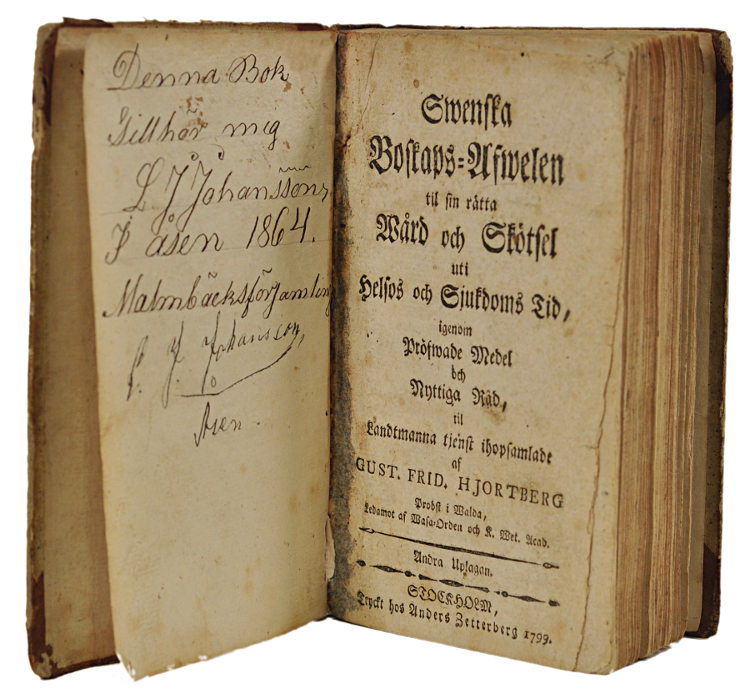 Denna Bok
Tillhör mig
L J Johansson
I åsen 1864.
Malmbäcksförjamling
L. J. Johansson,
Åsen.
Swenska
Boskaps-Afwelen
til sin rätta
Wård och Skötsel
uti
Helsos och Sjukdoms Tid,
igenom
Pröfwade Medel
och
Nyttiga Råd,
til
Landtmanna tjenst ihopsamlade
af
GUST. FRID. HJORTBERG
Probst i Walda,
Ledamot af Wasa-Orden och K. Wet. Acad.
Andra Uplagan.
STOCKHOLM,
Tryckt hos Anders Zetterberg 1799.